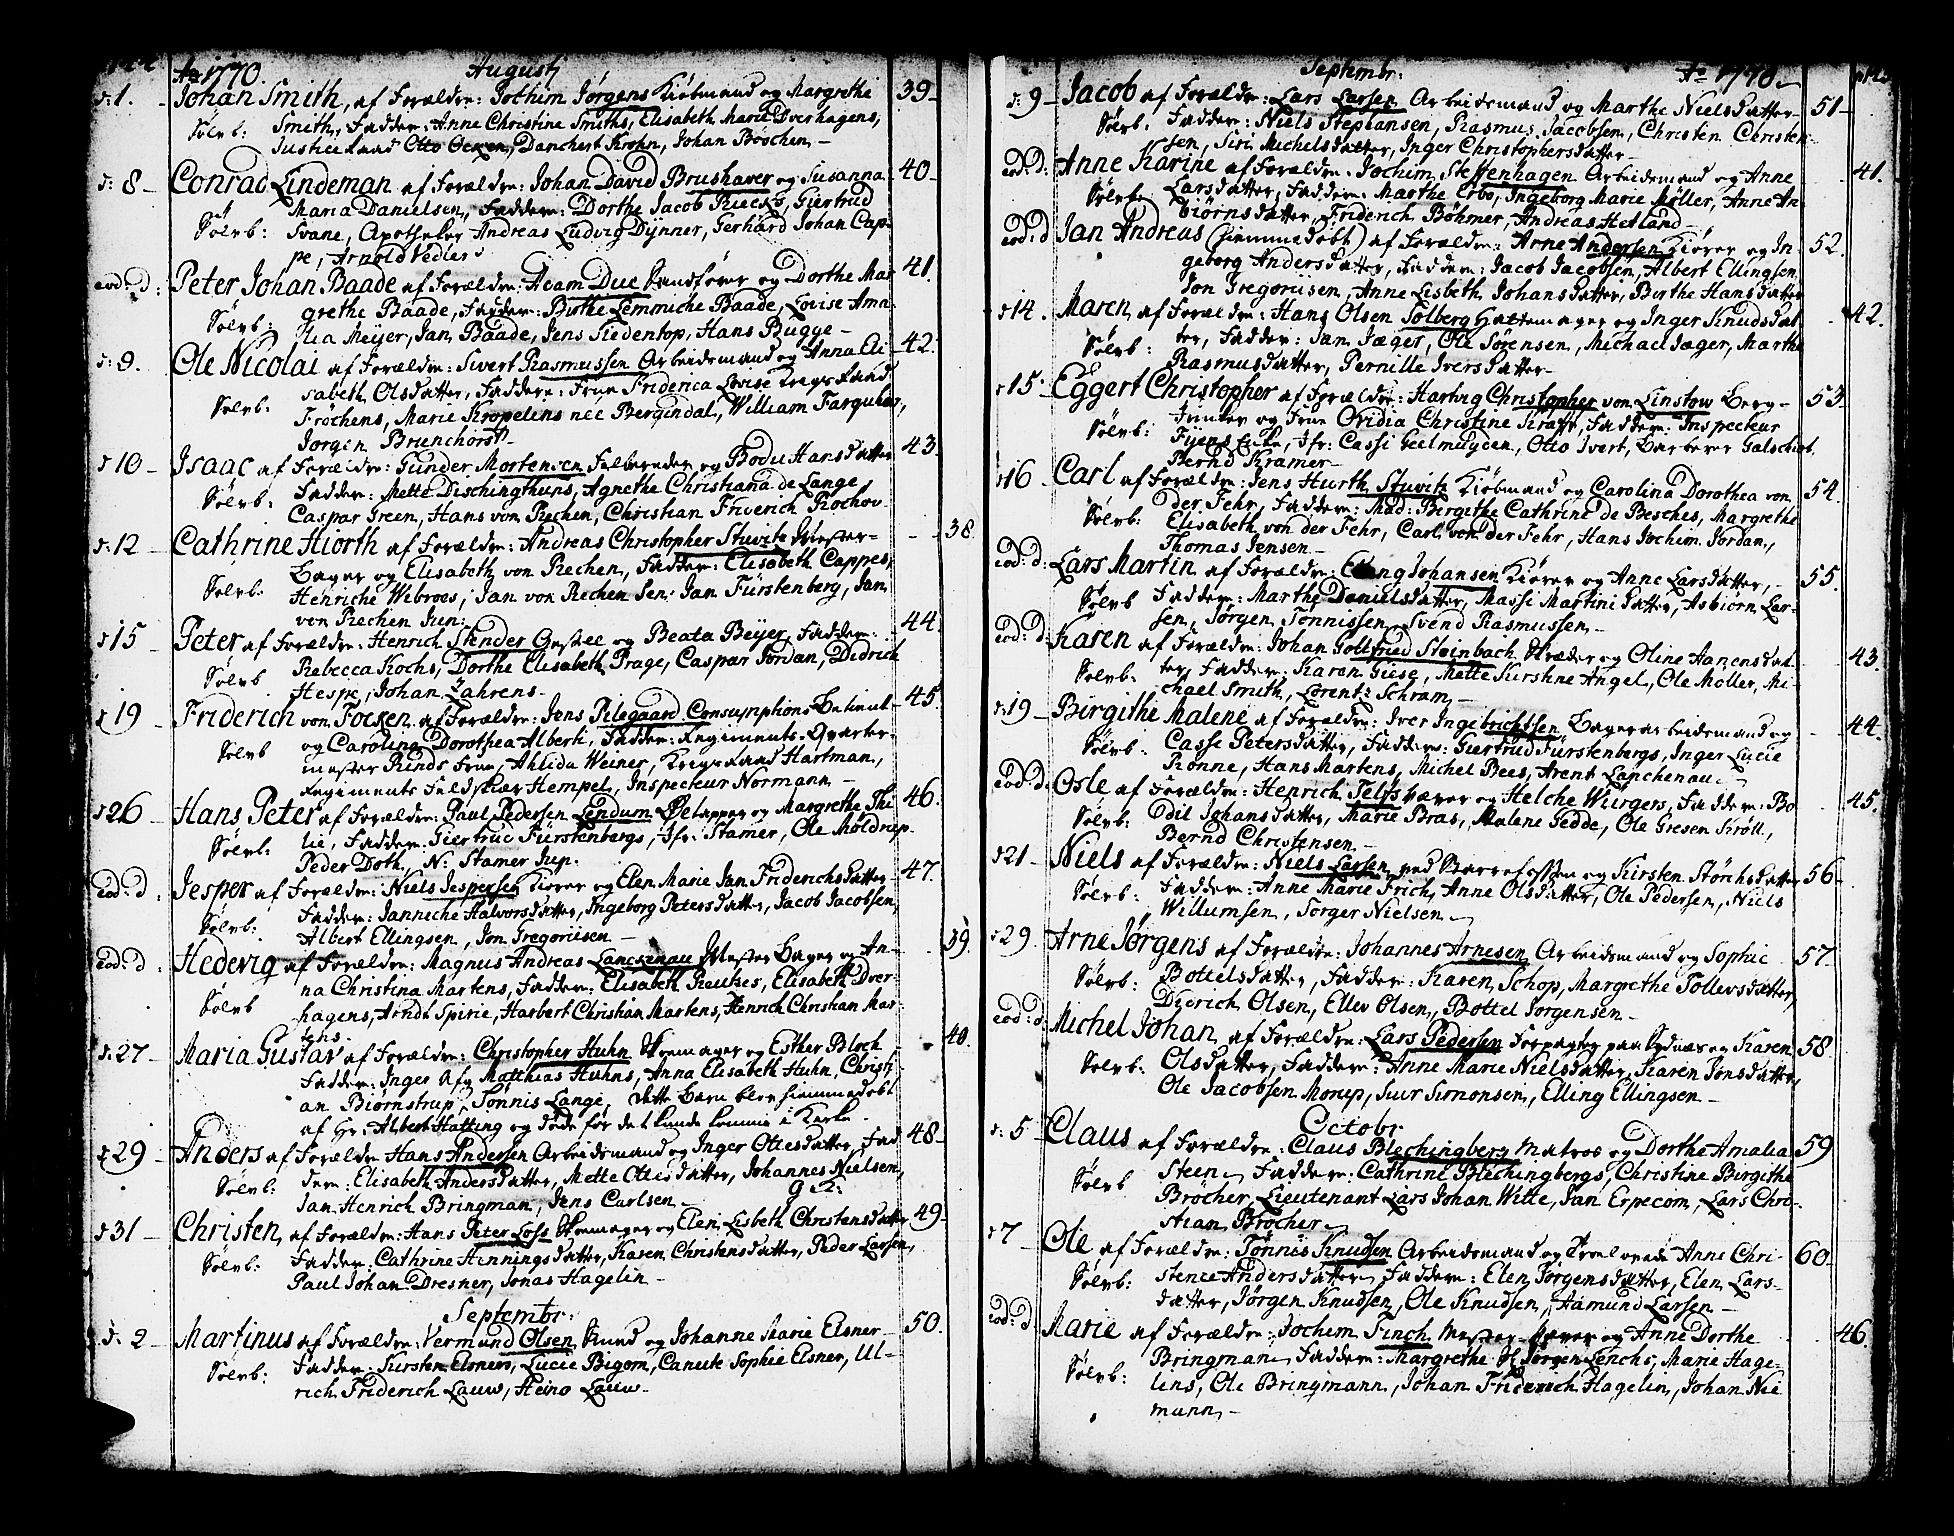 Ao 1770. Augusti
d: 1. Johan Smith, af Forældre: Jochim Jørgens Kiøbmand og Margrethe 39
Sølvb: Smith, Faddere: Anne Christine Smiths, Elisabeth Marie Dverhagens,
Justice Raad Otto Ocken, Danchert Krohn, Johan Brøchen
d: 8 Conrad Lindeman af Forældre: Johan David Brushaver og Susanna 40
Maria Danielsen, Faddere: Dorthe Jacob Giertrud
Sølvb: Svane, Apotheker Andreas Ludvig Dÿnner, Gerhard Johan Cap-
pe, Arnold Vedler
eod: d: Peter Johan Baade af Forældre: Adam Due og Dorthe Mar 41.
grethe Baade, Faddere: Birthe Lemmiche Baade, Lovise Ama
Sølvb: lia Meÿer, Jan Baade, Jens Tiedentop, Hans Bugge
d: 9. Ole Nicolai af Forældre: Sivert Rasmussen Arbeidsmand og Anna Eli 42.
sabeth Olsdatter, Faddere: Frue Friderica Lovise Krigs Raad
Sølvb: Frøchens, Marie Kropelins née Bergindal, William Farquhar,
Jørgen Brunchorst
d 10 Isaac af Forældre: Gunder Mortensen Felbereder og Bodil Hansdatter 43.
Sølvb: Faddere: Mette Dischingthuns, Agnethe Christiana de Lange
Caspar Green, Hans von Rechen, Christian Friderich Rochov
d: 12 Cathrine Hiorth af Forældre: Andreas Christopher Stuvitz Mester 38
Bager og Elisabeth von Rechen, Faddere: Elisabeth Cappes,
Sølvb: Henriche Wibroes, Jan von Rechen Sen: Jan Fürstenberg, Jan
von Rechen Jun:
d 15 Peter af Forældre: Henrich Stender og Beata Beÿer, Faddere: 44.
Rebecca Kochs, Dorthe Elisabeth Prage, Caspar Jordan, Didrich
Sølvb Hespe, Johan Zahrens
d 19 Friderich von Focken af Forældre: Jens Pilegaard Consumptions Betient 45.
og Carolina Dorothea Alberti, Faddere: Regiments-Qvarter-
Sølvb mester Rinds Frue, Ahlida Weiner, Krigsraad Hartman,
Regiments Feldskiær Hempel, Inspecteur Normann
d 26 Hans Peter af Forældre: Paul Pedersen Lendum Øltapper og Margrethe Thi 46.
lie, Faddere: Giertrud Fürstenbergs, Jfr: Stamer, Ole Møldrup
Sølvb: Peder Doth, N: Stamer Jun.
eod: d: Jesper af Forældre: Niels Jespersen Kiører og Elen Marie Jan Friderichsdatter 47.
Faddere: Janniche Halvorsdatter, Ingeborg Petersdatter, Jacob Jacobsen,
Sølvb: Albert Ellingsen, Jon Gregoriisen
eod: d: Hedevig af Forældre: Magnus Andreas Lanckenau Mester Bager og An- 39.
na Christina Martens, Faddere: Elisabeth Reutzes, Elisabeth Dver
Sølvb hagens, Arndt Spirie, Harbert Christian Martens, Henrich Christian Mar
tens.
d: 27 Maria Gustav af Forældre: Christopher Huhn og Esther Bloch 40.
Faddere: Inger Matthias Huhns, Anna Elisabeth Huhn, Christi
an Biørnstrup, Tønnis Lange, dette Barn blev hiemmedøbt
af Hr: Albert Hatting og døde før det kunde komme i Kirke
d 29 Anders af Forældre Hans Andersen Arbeidsmand og Inger Ottesdatter, Fad 48
dere: Elisabeth Andersdatter, Mette Ottesdatter, Johannes Nielsen,
Sølvb: Jan Henrich Bringman, Jens Carlsen
d 31 Christen af Forældre: Hans Peter Loss og Elen Lisbeth Christensdatter 49
Faddere: Cathrine Henningsdatter, Karen Christensdatter, Peder Larsen,
Sølvb: Paul Johan Dresner, Jonas Hagelin
Septembr:
d: 2 Martinus af Forældre: Vermund Olsen og Johanne Marie Elsner 50.
Faddere: Kirsten Elsners, Lucie Bigom, Canute Sophie Elsner, Ul-
Sølvb: rich Friderich Lauw, Heino Lauw
Septembr: Ao 1770
d: 9 Jacob af Forældre: Lars Larsen Arbeidsmand og Marthe Nielsdatter 51
Sølvb. Faddere: Niels Stephansen, Rasmus Jacobsen, Christen Christen
sen, Siri Michelsdatter, Inger Christophersdatter
eod: d: Anne Karine af Forældre: Jochim Steffenhagen Arbeidsmand og Anne 41.
Sølvb. Larsdatter, Faddere: Marthe Erbo, Ingeborg Marie Møller, Anne An
biørnsdatter, Friderich Böhmer, Andreas Hetland
eod: d Jan Andreas (hiemmedøbt) af Forældre: Arne Andersen Kiører og In- 52.
geborg Andersdatter, Faddere: Jacob Jacobsen, Albert Ellingsen,
Jon Gregoriisen, Anne Lisbeth Johansdatter, Birthe Hansdatter
d 14. Maren af Forældre: Hans Olsen Solberg Hattemager og Inger Knudsdat 42.
Sølvb: ter, Faddere: Jan Jæger, Ole Sørensen, Michael Jæger, Marthe
Rasmusdatter, Pernille Iversdatter
d 15. Eggert Christopher af Forældre: Hartvig Christopher von Linstow Berg- 53
Junker og Frue Øridia Christine Krafft, Faddere: Inspecteur
Sølvb: Fyens Enke, Jfr: Cassi Geelmuyden, Otto Ivert, Barberer Galschiøt,
Bernd Kramer
d 16 Carl af Forældre: Jens Hiorth Stuvitz Kiøbmand og Carolina Dorothea von 54.
der Fehr, Faddere: Mad: Birgithe Cathrine de Besches, Margrethe
Sølvb: Elisabeth von der Fehr, Carl von der Fehr, Hans Jochim Jordan,
Thomas Jensen
eod: d: Lars Martin af Forældre: Johansen Kiører og Anne Larsdatter, 55.
Sølvb Faddere: Marthe Danielsdatter, Massi Martinidatter, Asbiørn Lar-
sen, Jørgen Tønnissen, Svend Rasmussen
eod: d: Karen af Forældre: Johan Gottfried Steinbach Skræder og Oline Hansdat 43.
Sølvb: ter, Faddere: Karen Giese, Mette Kirstine Angel, Ole Møller, Mi-
chael Smith, Lorentz Schram
d: 19 Birgithe Malene af Forældre: Iver Ingebrichtsen Bagerarbeidsmand og 44.
Sølvb: Casse Petersdatter, Faddere: Giertrud Fürstenbergs, Inger Lucie
Rønne, Hans Martens, Michel Bees, Arent Lanchenau
eod: d: Osle af Forældre: Henrich Selfs Væver og Helche Würgers, Faddere: Bo 45.
Sølvb: dil Johansdatter, Marie Bras, Malene Gedde, Ole Gresen Krøll,
Bernd Christensen
d 21 Niels af Forældre: Niels Larsen ved og Kirsten Størchsdatter 56
Sølvb: Faddere: Anne Marie Frich, Anne Olsdatter, Ole Pedersen, Niels
Willumsen, Torger Nielsen
d 29 Arne Jørgens af Forældre: Johannes Arnesen Arbeidsmand og Sophie 57.
Sølvb: Bottelsdatter, Faddere: Karen Schop, Margrethe Tollevsdatter,
Diderich Olsen, Ellev Olsen, Bottel Jørgensen
eod: d: Michel Johan af Forældre: Lars Pedersen Forpagter paa Sydnæs og Karen 58
Sølvb: Olsdatter, Faddere: Anne Marie Nielsdatter, Karen Jonsdatter,
Ole Jacobsen Morup, Siur Simonsen, Elling Ellingsen
Octobr
d: 5 Claus af Forældre: Claus Blechingberg Matros og Dorthe Amalia 59
Sølvb Steen, Faddere: Cathrine Blechingbergs, Christine Birgithe
Brøcher, Lieutenant Lars Johan Witte, Jan Especom, Lars Chri-
stian Brøcher
d 7 Ole af Forældre: Tønnis Knudsen Arbeidsmand og Trolovede Anne Chri- 60
Sølvb: stence Andersdatter, Faddere: Elen Jørgensdatter, Elen Lars-
datter, Jørgen Knudsen, Ole Knudsen, Aamund Larsen
eod: d Marie af Forældre: Jochem Finch Mester Væver og Anne Dorthe 46.
Sølvb: Bringman, Faddere: Margrethe Sl. Jørgen Lenchs, Marie Hage-
lins, Ole Bringmann, Johan Friderich Hagelin, Johan Nie
mann